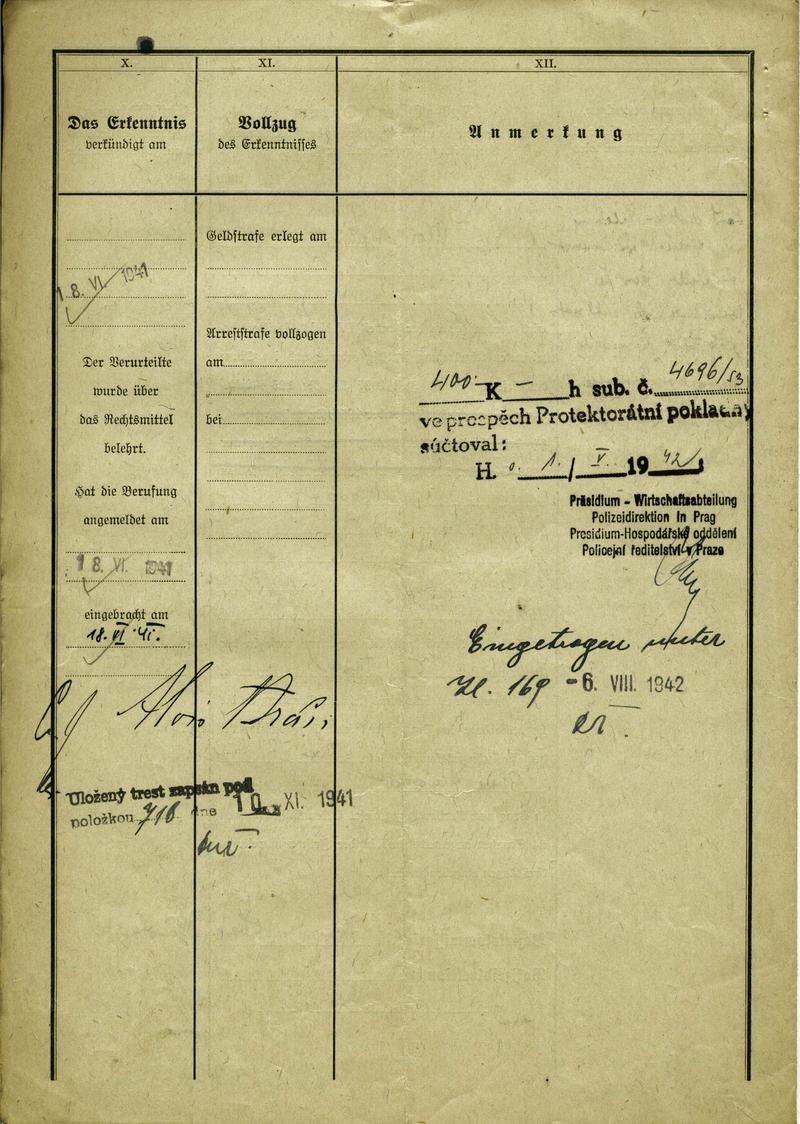 X.
Das Erkenntnis
verkündigt am
18. VI. 1941
Der Verurteilte
wurde über
das Rechtsmittel
belehrt.
Hat die Berufung
angemeldet am
18. VI. 1941
eingebracht am
18. VI. 41.
Alois
Uložený trest zapsán pod
položkou 716 dne 10. XI. 1941
XI.
Vollzug
des Erkenntnisses
Geldstrafe erlegt am
Arreststrafe vollzogen
am
bei
XII.
Anmerkung
400 K — h sub. č. 4696/53
ve prospěch Protektorátní pokladny
súčtoval:
H. o. 1. / V. 1942
Präsidium - Wirtschaftsabteilung
Polizeidirektion in Prag
Presidium-Hospodářské oddělení
Policejní ředitelství v Praze
Eingetragen unter
Zl. 169 -6. VIII. 1942